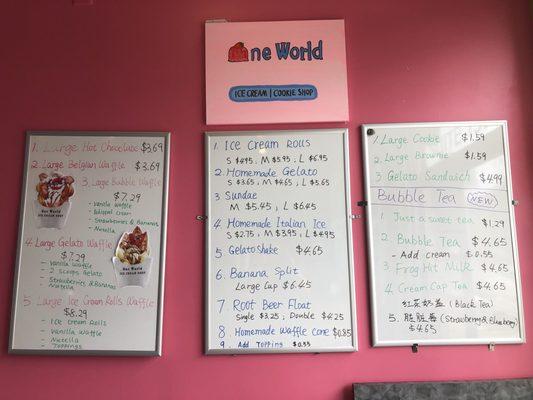 One World
ICE CREAM | COOKIE SHOP
1. Large Hot Chocolate $3.69
2. Large Belgian Waffle $3.69
3. Large Bubble Waffle
$7.29
- Vanilla Waffle
- Whipped Cream
- Strawberries & Bananas
- Nutella
4. Large Gelato Waffle
$7.29
- Vanilla Waffle
- 2 scoops Gelato
- Strawberries & Bananas
Nutella
5. Large Ice Cream Rolls Waffle
$8.29
- Ice Cream Rolls
- Vanilla Waffle
- Nutella
- Toppings
1 Ice Cream Rolls
S $4.95, M $5.95, L $6.95
2. Homemade Gelato
S $3.65 M $4.65, L $5.65
3. Sundae
M $5.45, L $6.45
4 Homemade Italian Ice
S $2.75 M $3.95 L $4.95
5 Gelato Shake $4.65
6. Banana Split
Large Cup $6.45
7. Root Beer Float
Single $3.25; Double $4.25
8 Homemade Waffle Cone $0.85
9. Add Topping $0.55
1. Large Cookie $1.59
2. Large Brownie $1.59
3 Gelato Sandwich $4.99
Bubble Tea NEW
1. Just a sweet tea $1.29
2. Bubble Tea $4.65
- Add cream $0.55
3. Frog Hit Milk $4.65
4. Cream Cap Tea $4.65
红茶奶盖 (Black Tea)
5. 脏脏茶 (Strawberry & Blueberry)
$4.65